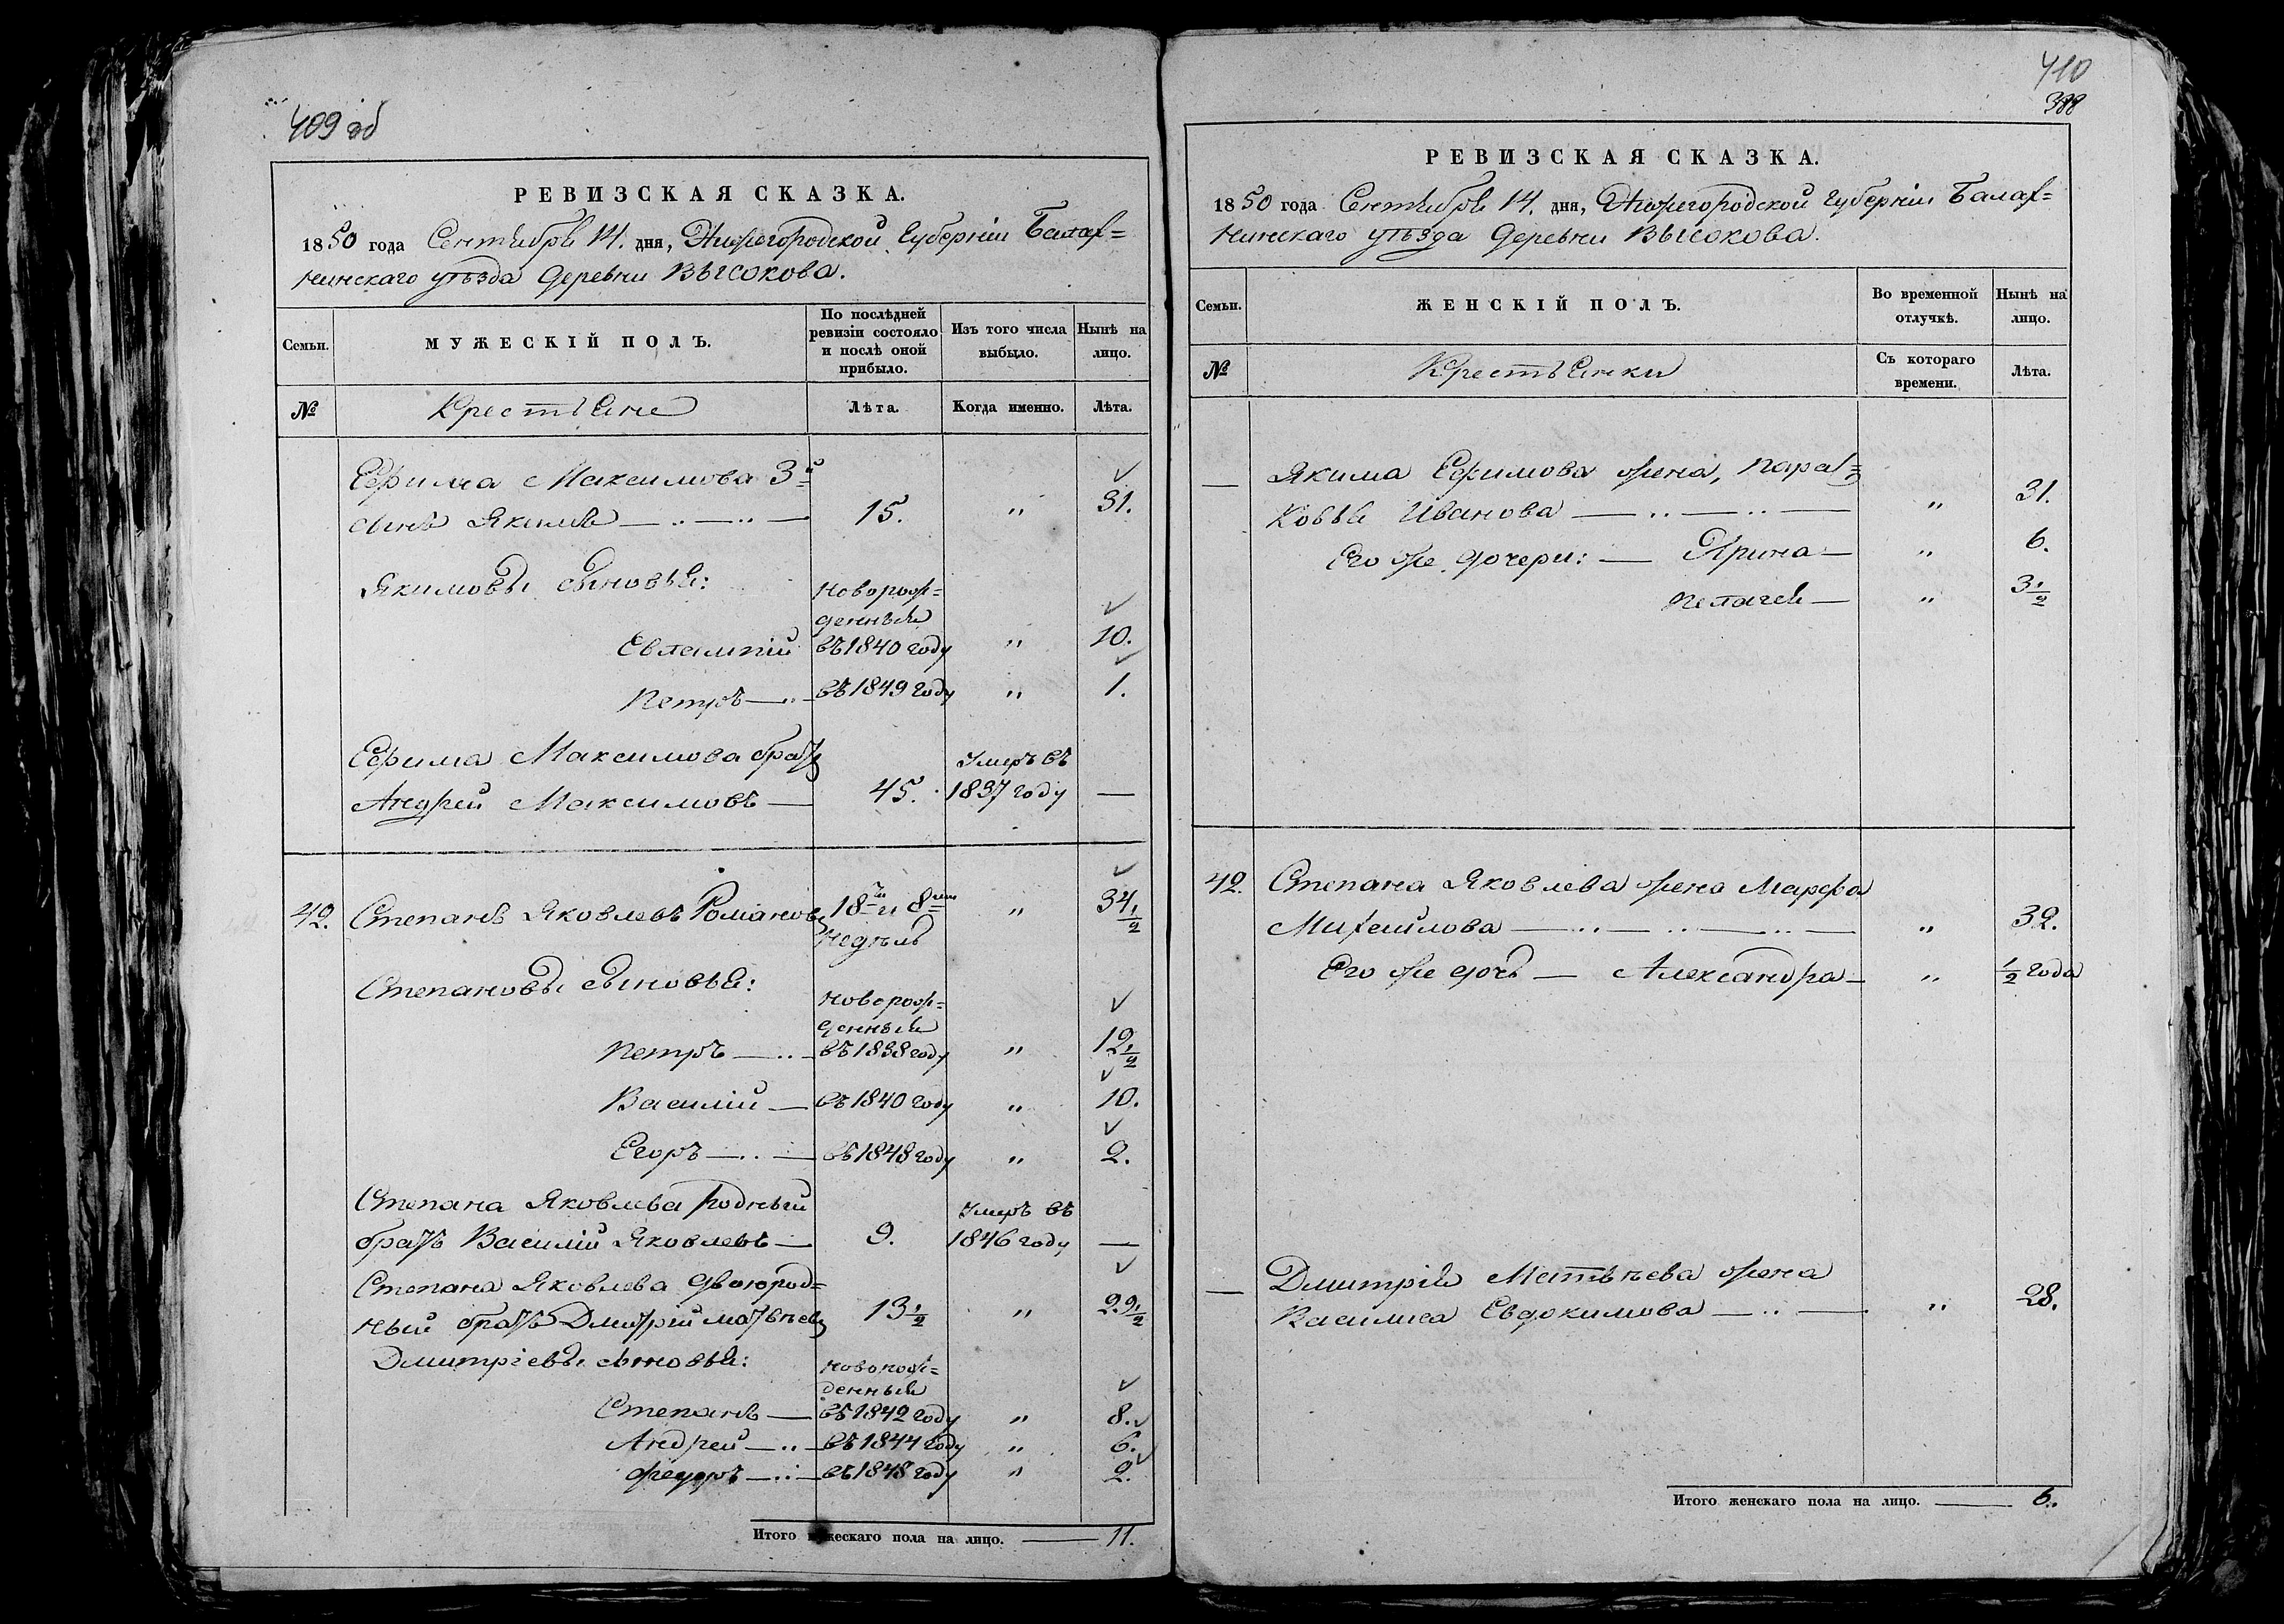 409 об
РЕВИЗСКАЯ СКАЗКА.
1850 года Сентября 14. дня, Нижегородской Губернiи Балах=
нинскаго уѣзда Деревни Высокова.
Семьи.
МУЖЕСКІЙ ПОЛЪ.
По послѣдней ревизіи состояло и послѣ оной прибыло.
Изъ того числа выбыло.
Нынѣ на лицо.
№
Крестьяне
Лѣта.
Когда именно.
Лѣта.
Ефима Максимова 3й
сынъ Якимъ — 15. " 31.
Якимовы сыновья:
новорож=
денный
Евлампій въ 1840 году " 10.
Петръ — въ 1849 году " 1.
Ефима Максимова братъ
Умеръ въ
Андрей Максимовъ — 45. 1837 году —
42. Степанъ Яковлевъ Романовъ 18ть и 8ми " 34 1/2
недѣль
Степановы сыновья:
новорож=
денный
Петръ — въ 1838 году " 12 1/2
Василій — въ 1840 году " 10.
Егоръ — въ 1848 году " 2.
Степана Яковлева родный
Умеръ въ
братъ Василій Яковлевъ — 9. 1846 году —
Степана Яковлева двоюрод=
ный братъ Дмитрій Матвѣевъ 13 1/2 " 29 1/2
Дмитріевы сыновья:
новорож=
денный
Степанъ — въ 1842 году " 8.
Андрей — въ 1844 году " 6.
Федоръ — въ 1848 году " 2.
Итого мужескаго пола на лицо. — 11.
410
388
РЕВИЗСКАЯ СКАЗКА.
1850 года Сентября 14. дня, Нижегородской Губерніи Балах=
нинскаго уѣзда Деревни Высокова.
Семьи.
ЖЕНСКІЙ ПОЛЪ.
Во временной отлучкѣ.
Нынѣ на лицо.
№
Крестьянки
Съ котораго времени.
Лѣта.
— Якима Ефимова жена, Парас=
ковья Иванова — " 31.
Его же дочери: — Арина — " 6.
Пелагея — " 3 1/2
42. Степана Яковлева жена Марфа
Михайлова — " 32.
Его же дочь — Александра — " 1/2 года
— Дмитрія Матвѣева жена
Василиса Евдокимова — " 28.
Итого женскаго пола на лицо. — 6.